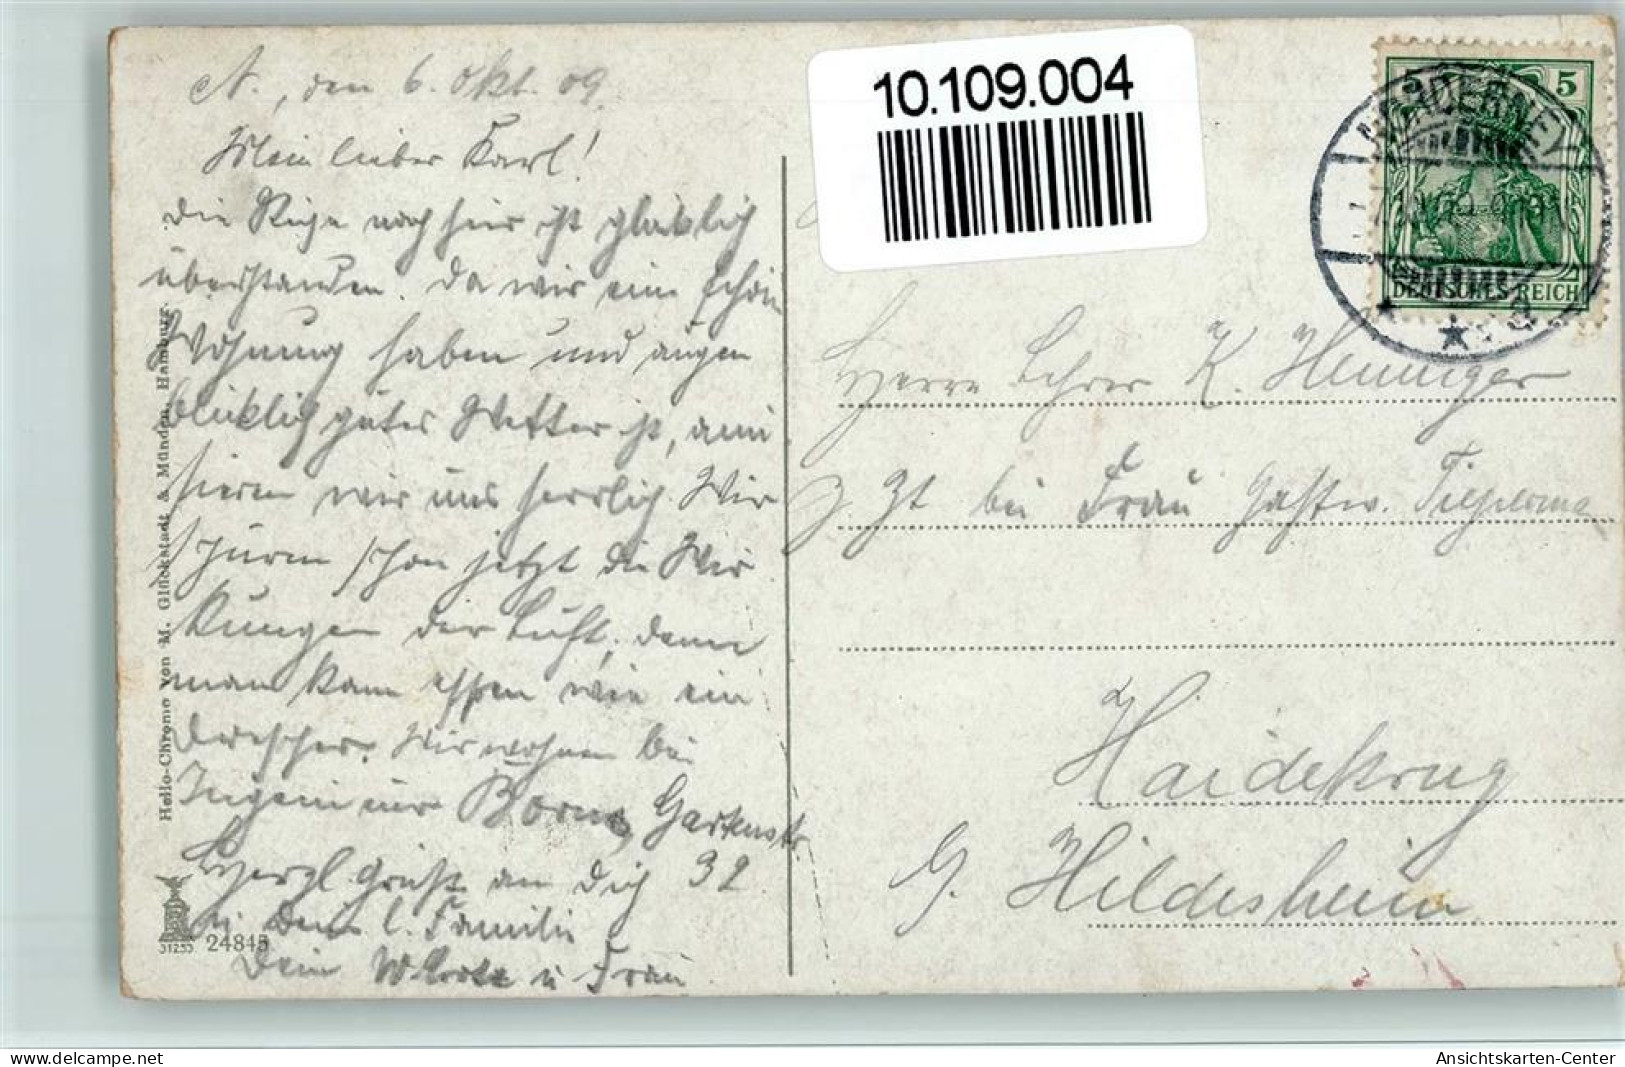 N., den 6. Okt. 09.
Mein lieber Karl!
die Reise nach hier ist glücklich
überstanden. Da wir eine schöne
Wohnung haben und augen
blicklich gutes Wetter ist, amü
sieren wir uns herrlich. Wir
spüren schon jetzt die Wir
kungen der Luft, denn
man kann essen wie ein
Drescher. Wir wohnen bei
Ingenieur Borne, Gartenstr
32
Herzl. Gruß an Dich
u. Deine l. Familie
Dein W. u Frau
Hello-Chromo von M. Glückstadt & Münden, Hamburg.
31255 24845
10.109.004
5 5
NORDERNEY
DEUTSCHES REICH
Herrn Lehrer K. Henniger
z. Zt bei Frau Gastw.
Haidekrug
b. Hildesheim
www.delcampe.net
Ansichtskarten-Center